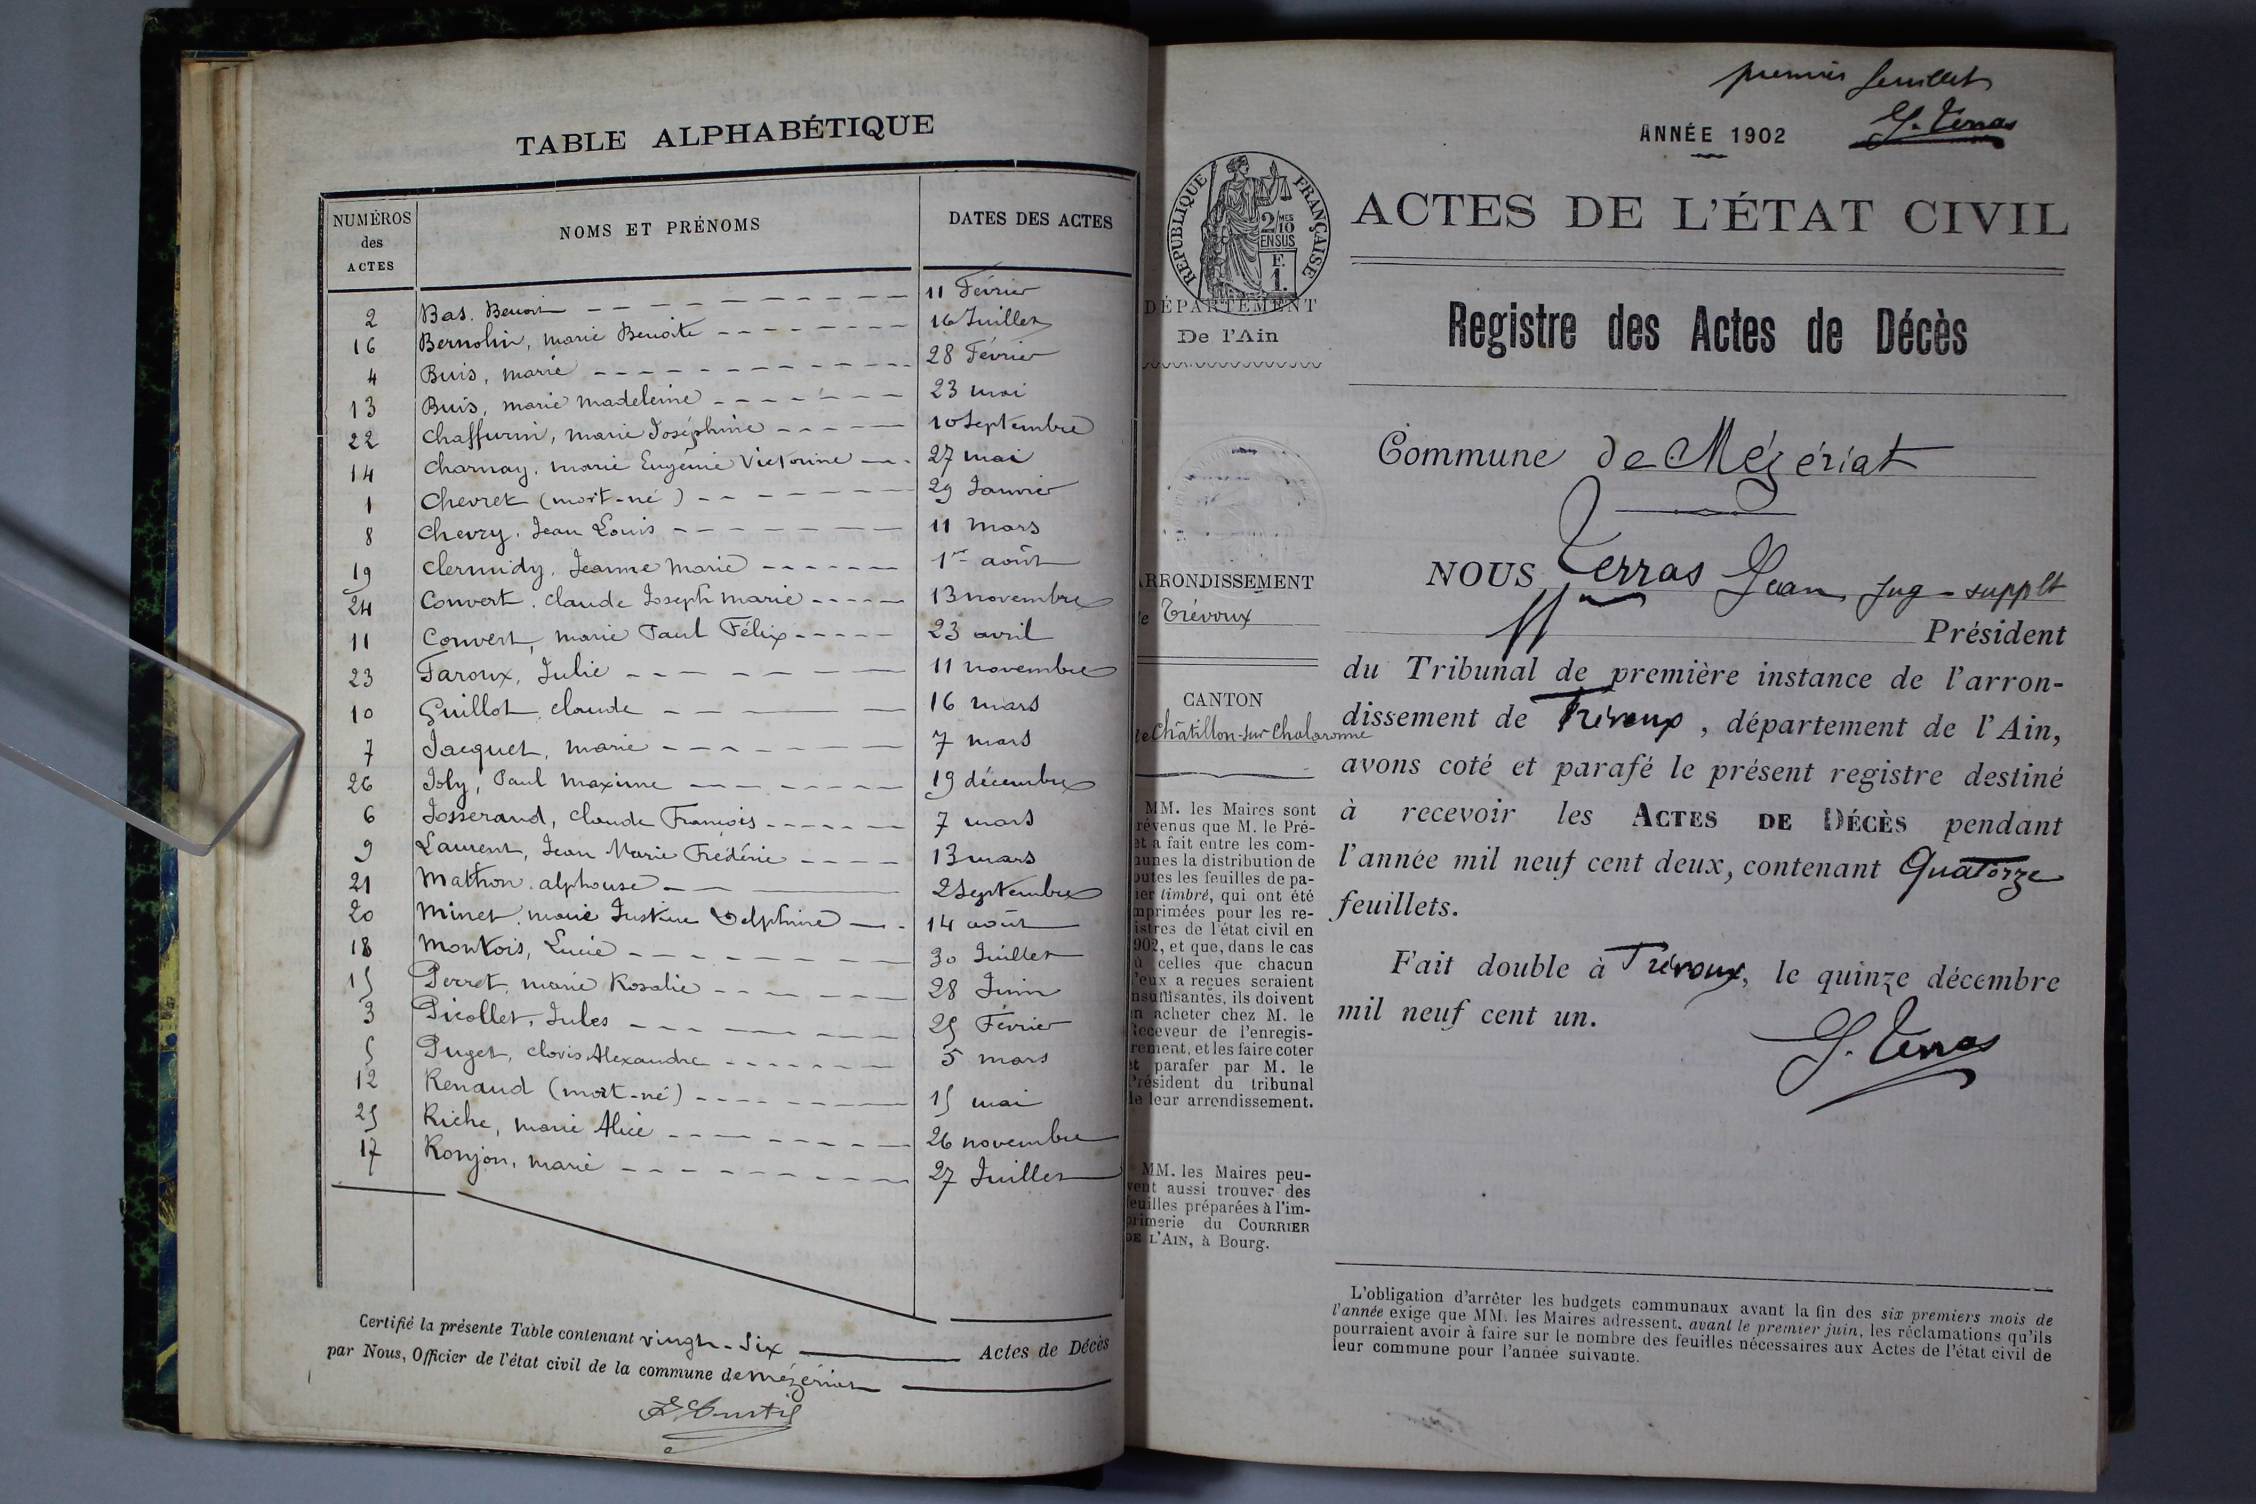 TABLE ALPHABÉTIQUE
NUMÉROS des ACTES NOMS ET PRÉNOMS DATES DES ACTES
2 Bas. Benoit 11 Février
16 Bernolin, marie Benoite 16 Juillet
4 Buis, marie 28 Février
13 Buis, marie madeleine 23 mai
22 Chaffurin, marie Joséphine 10 Septembre
14 Charnay, marie Eugénie Victorine 27 mai
1 Chevret (mort-né) 29 Janvier
8 Chevry. Jean Louis 11 mars
19 Clermidy, Jeanne Marie 1er août
24 Convert. Claude Joseph Marie 13 novembre
11 Convert, marie Paul Félix 23 avril
23 Faroux, Julie 11 novembre
10 Guillot, Claude 16 mars
7 Jacquet, marie 7 mars
26 Joly, Paul Maxime 19 décembre
6 Josserand, Claude François 7 mars
9 Laurent, Jean Marie Frédéric 13 mars
21 Mathon. alphonse 2 Septembre
20 Minet, marie Justine Delphine 14 août
18 Montois, Lucie 30 Juillet
15 Perret, marie Rosalie 28 Juin
3 Picollet, Jules 25 Février
5 Puget, Clovis Alexandre 5 mars
12 Renaud (mort-né) 15 mai
25 Riche, marie Alice 26 novembre
17 Ronjon, marie 27 Juillet
Certifié la présente Table contenant vingt-six Actes de Décès
par Nous, Officier de l'état civil de la commune de Mézériat
premier feuillet
J. Terras
ANNÉE 1902
RÉPUBLIQUE FRANÇAISE
2/10 MES
EN SUS
F.
1.
ACTES DE L'ÉTAT CIVIL
DÉPARTEMENT
De l'Ain
Registre des Actes de Décès
Commune de Mézériat
ARRONDISSEMENT
de Trévoux
CANTON
de Châtillon-sur-Chalaronne
MM. les Maires sont
prévenus que M. le Pré-
et a fait entre les com-
munes la distribution de
toutes les feuilles de pa-
pier timbré, qui ont été
imprimées pour les re-
gistres de l'état civil en
1902, et que, dans le cas
où celles que chacun
d'eux a reçues seraient
insuffisantes, ils doivent
en acheter chez M. le
Receveur de l'enregis-
rement, et les faire coter
et parafer par M. le
Président du tribunal
de leur arrondissement.
MM. les Maires peu-
vent aussi trouver des
feuilles préparées à l'im-
primerie du COURRIER
DE L'AIN, à Bourg.
NOUS Terras Jean, jug-supplt
Président
du Tribunal de première instance de l'arron-
dissement de Trévoux, département de l'Ain,
avons coté et parafé le présent registre destiné
à recevoir les ACTES DE DÉCÈS pendant
l'année mil neuf cent deux, contenant Quatorze
feuillets.
Fait double à Trévoux, le quinze décembre
mil neuf cent un.
J. Terras
L'obligation d'arrêter les budgets communaux avant la fin des six premiers mois de
l'année exige que MM. les Maires adressent, avant le premier juin, les réclamations qu'ils
pourraient avoir à faire sur le nombre des feuilles nécessaires aux Actes de l'état civil de
leur commune pour l'année suivante.